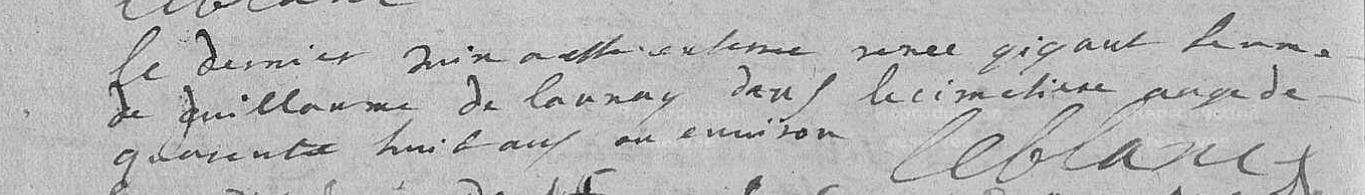 leblanc
le dernier Juin a este enterree renee gigaut femme
de guillaume de launay dans le cimetiere augee de
quarente huit ans ou environ leblanc